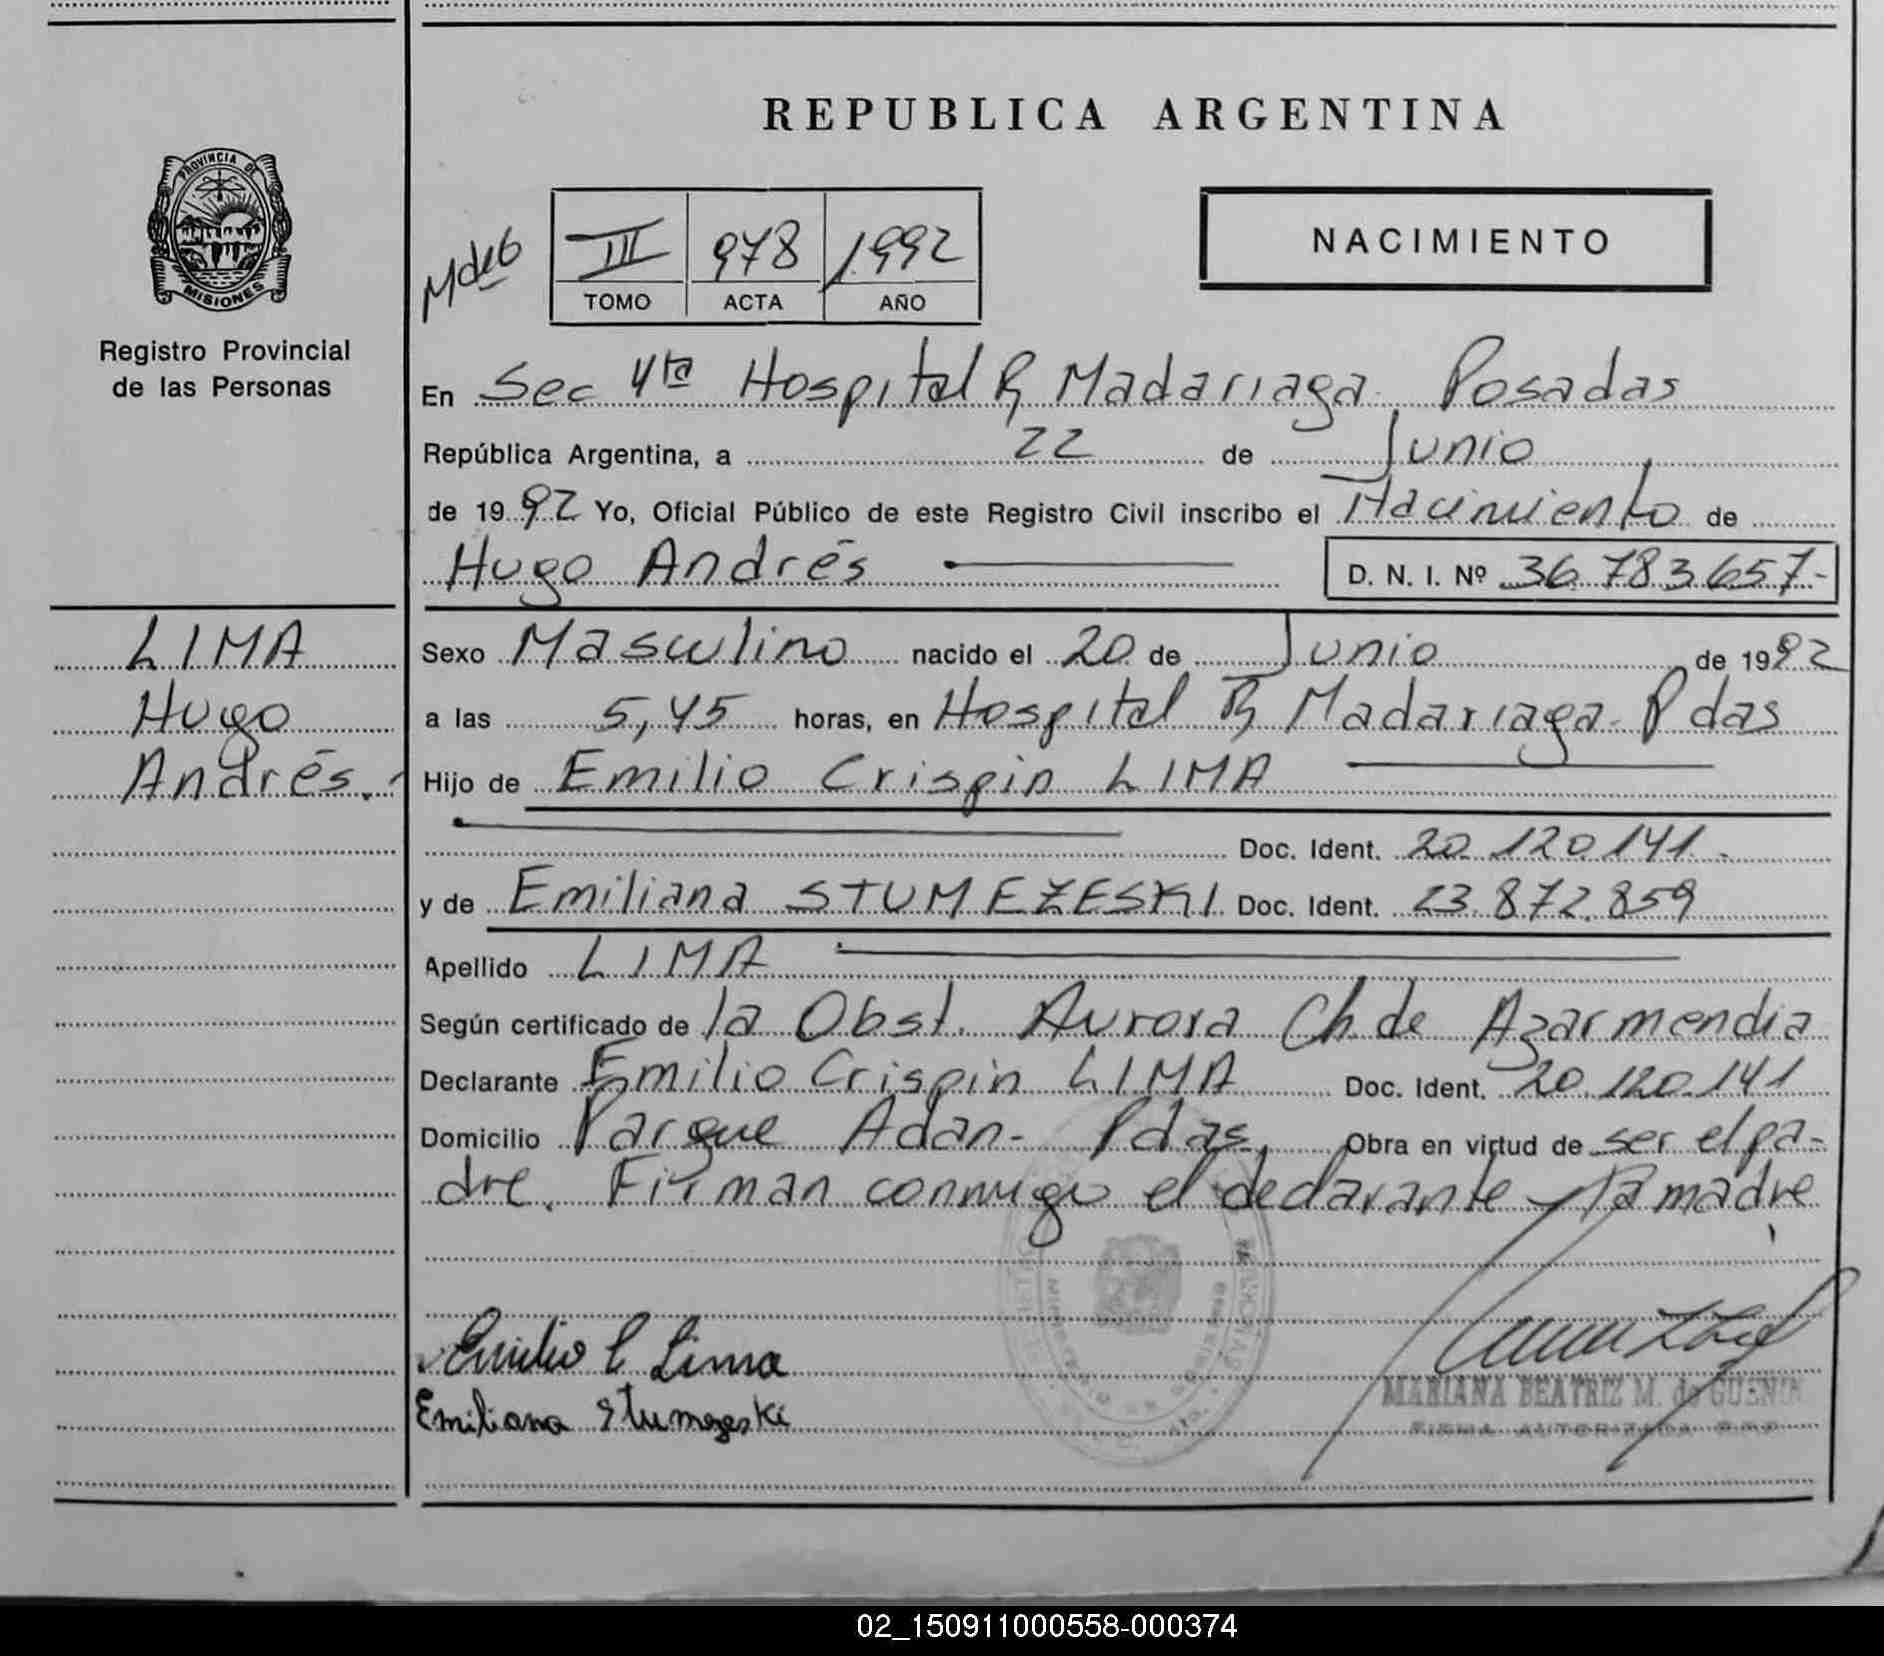 REPUBLICA ARGENTINA
PROVINCIA DE
MISIONES
Registro Provincial
de las Personas
III 978 1992
TOMO ACTA AÑO
NACIMIENTO
En Sec 4ta Hospital R Madariaga Posadas
República Argentina, a 22 de Junio
de 1992 Yo, Oficial Público de este Registro Civil inscribo el Nacimiento de
Hugo Andrés D. N. I. Nº 36.783.657.-
LIMA
Hugo
Andrés.
Sexo Masculino nacido el 20 de Junio de 1992
a las 5,45 horas, en Hospital R Madariaga - Pdas
Hijo de Emilio Crispin LIMA
Doc. Ident. 20.120.141.-
y de Emiliana STUMEZESKI Doc. Ident. 23.872.859
Apellido LIMA
Según certificado de la Obst. Aurora Ch de Azarmendia
Declarante Emilio Crispin LIMA Doc. Ident. 20.120.141
Domicilio Parque Adan - Pdas. Obra en virtud de ser el pa-
dre. Firman conmigo el declarante y la madre
Emilio C Lima
Emiliana Stumezeski
MARIANA BEATRIZ M. de
FIRMA AUTORIZADA
02_150911000558-000374